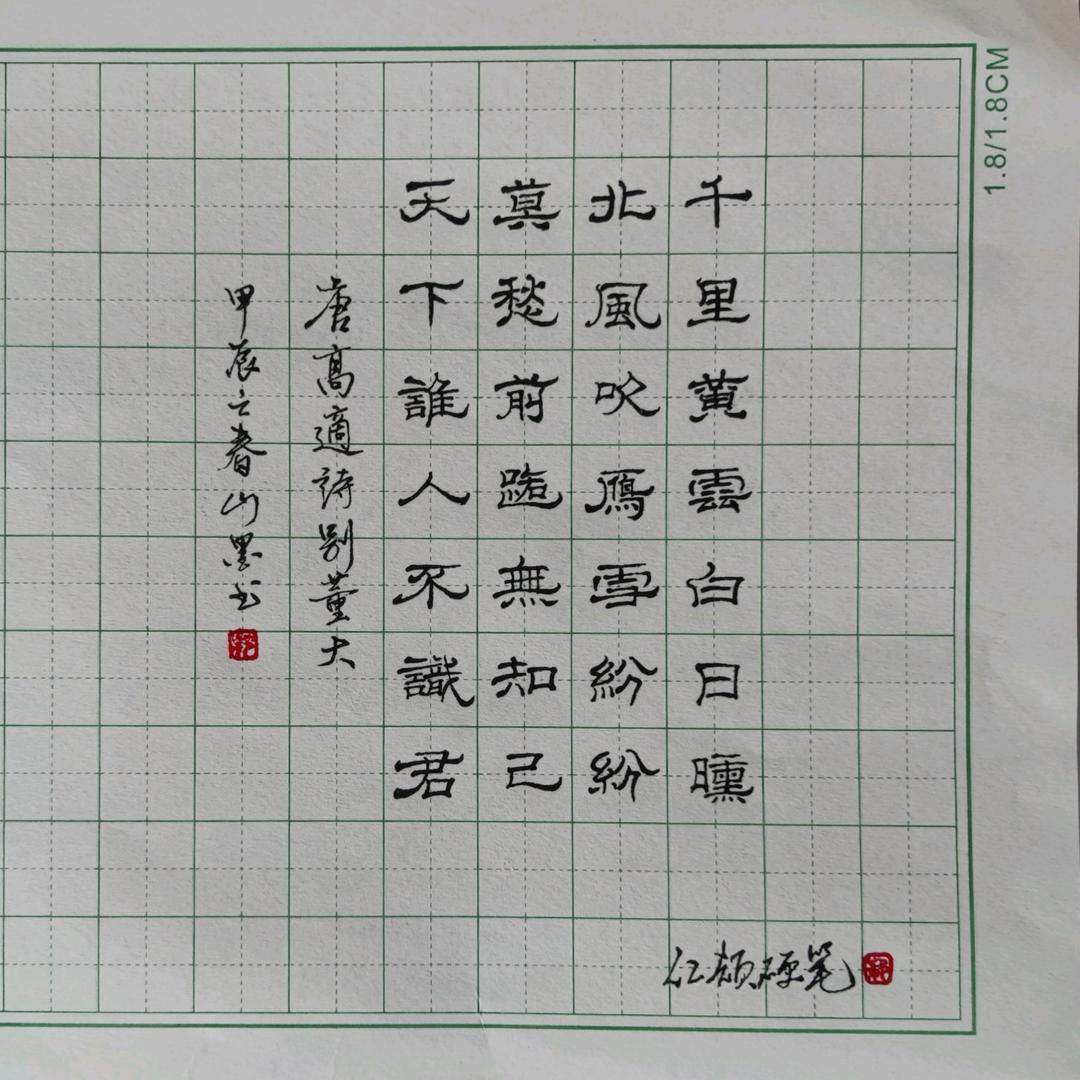 千里黄雲白日曛
北風吹鴈雪紛紛
莫愁前路無知己
天下誰人不識君
唐高適詩別董大
甲辰立春山墨书
硬笔
1.8/1.8CM